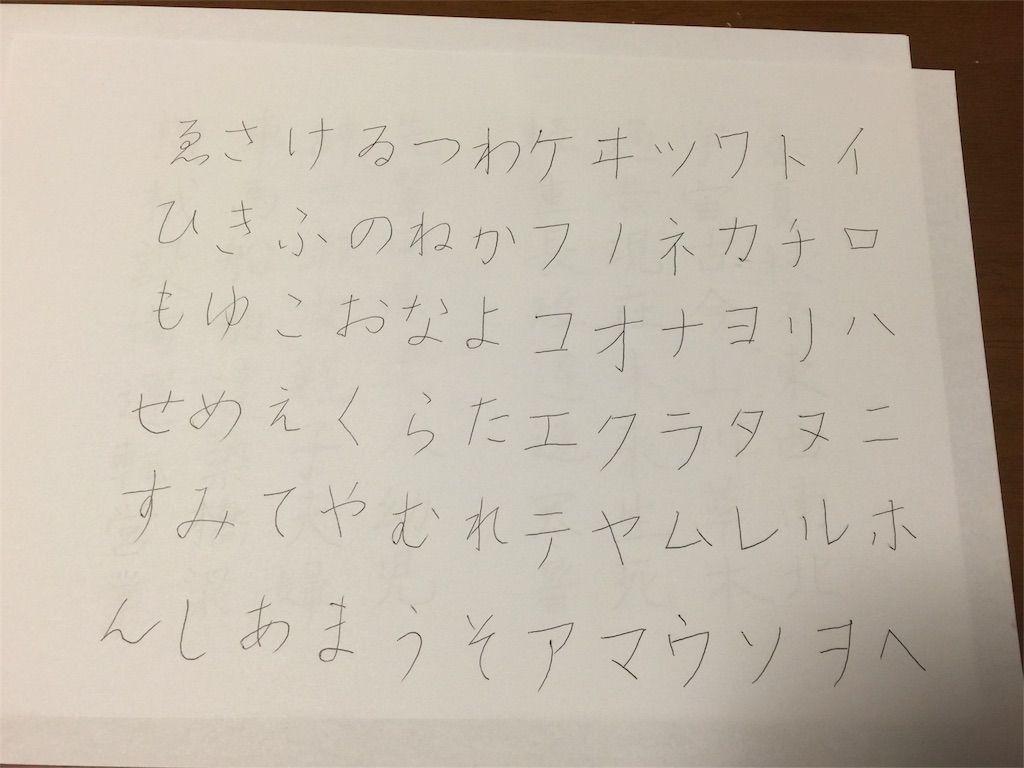 イロハニホヘ
トチリヌルヲ
ワカヨタレソ
ツネナラムウ
ヰノオクヤマ
ケフコエテア
わかよたれそ
つねならむう
ゐのおくやま
けふこえてあ
さきゆめみし
ゑひもせすん